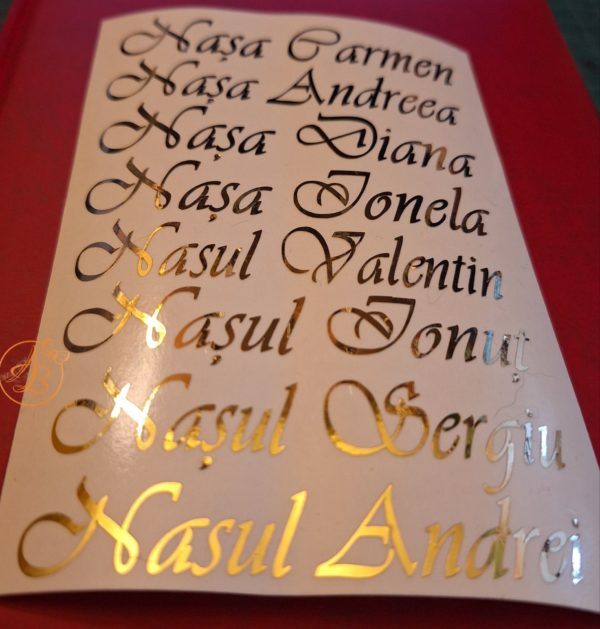 Nașa Carmen
Nașa Andreea
Nașa Diana
Nașa Ionela
Nasul Valentin
Nașul Ionuț
Nașul Sergiu
Nasul Andrei